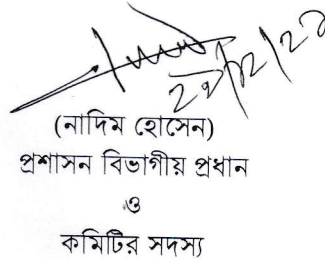 (নাদিম হোসেন)
প্রশাসন বিভাগীয় প্রধান
ও
কমিটির সদস্য